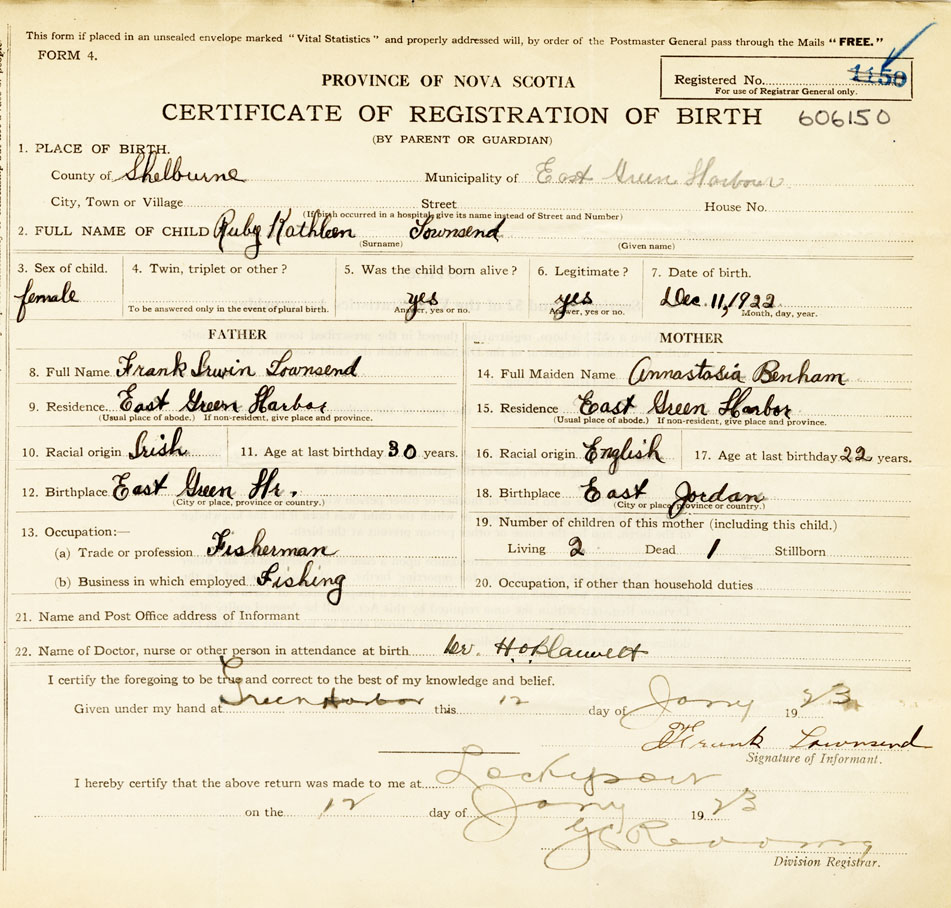 This form if placed in an unsealed envelope marked "Vital Statistics" and properly addressed will, by order of the Postmaster General pass through the Mails "FREE."
FORM 4.
Registered No. 1150
For use of Registrar General only.
PROVINCE OF NOVA SCOTIA
CERTIFICATE OF REGISTRATION OF BIRTH 606150
(BY PARENT OR GUARDIAN)
1. PLACE OF BIRTH.
County of Shelburne Municipality of East Green Harbour
City, Town or Village Street House No.
(If birth occurred in a hospital, give its name instead of Street and Number)
2. FULL NAME OF CHILD Ruby Kathleen Townsend
(Surname) (Given name)
3. Sex of child. 4. Twin, triplet or other? 5. Was the child born alive? 6. Legitimate? 7. Date of birth.
female yes yes Dec. 11, 1922
To be answered only in the event of plural birth. Answer, yes or no. Answer, yes or no. Month, day, year.
FATHER MOTHER
8. Full Name Frank Irwin Townsend 14. Full Maiden Name Annastasia Benham
9. Residence East Green Harbor 15. Residence East Green Harbor
(Usual place of abode.) If non-resident, give place and province. (Usual place of abode.) If non-resident, give place and province.
10. Racial origin Irish 11. Age at last birthday 30 years. 16. Racial origin English 17. Age at last birthday 22 years.
12. Birthplace East Green Hr. 18. Birthplace East Jordan
(City or place, province or country.) (City or place, province or country.)
13. Occupation:— 19. Number of children of this mother (including this child.)
(a) Trade or profession Fisherman Living 2 Dead 1 Stillborn
(b) Business in which employed Fishing 20. Occupation, if other than household duties
21. Name and Post Office address of Informant
22. Name of Doctor, nurse or other person in attendance at birth
I certify the foregoing to be true and correct to the best of my knowledge and belief.
Given under my hand at Green Harbor this 12 day of Jany 1923
Frank Townsend
Signature of Informant.
I hereby certify that the above return was made to me at Lockeport
on the 12 day of Jany 1923
Division Registrar.